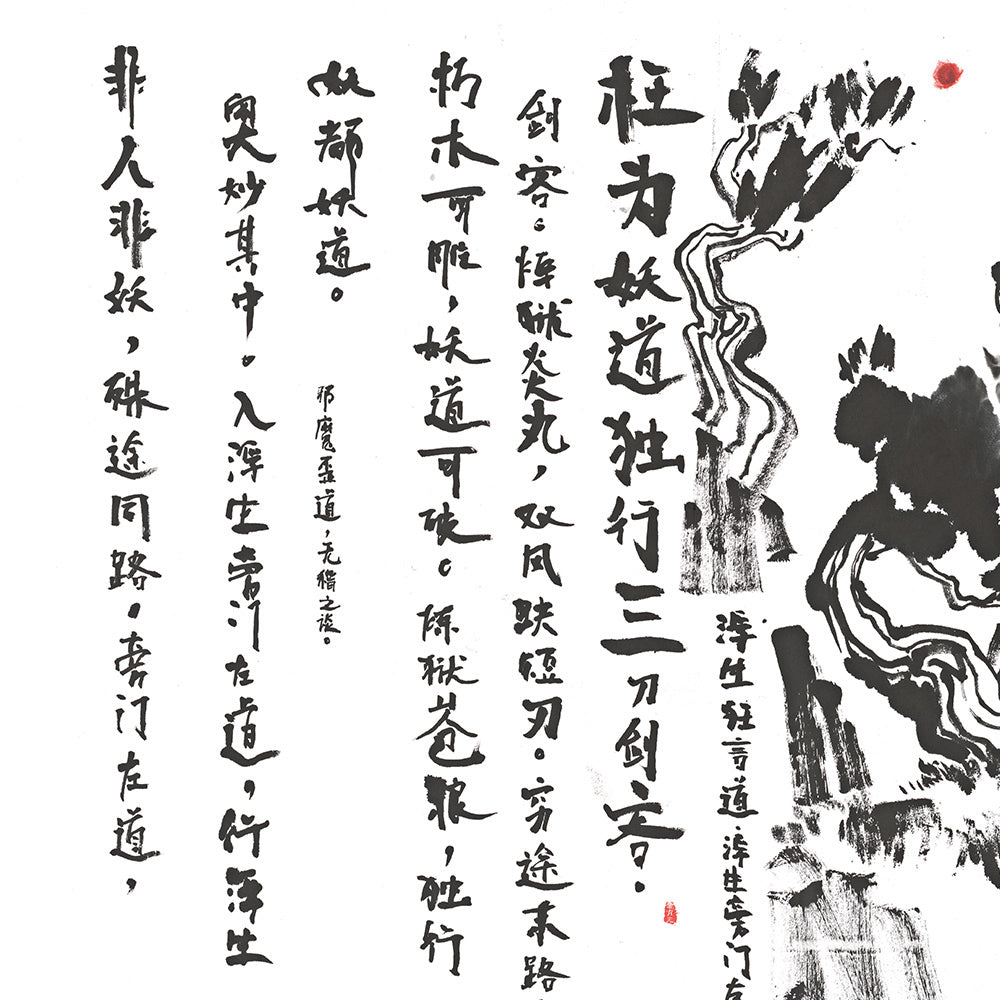 浮生狂言道。浮生旁门左
枉为妖道独行三刀剑客。
剑客。狱炎丸，双风短刃。穷途末路
朽木可雕，妖道可破。炼狱苍狼，独行
妖都妖道。
邪魔歪道，无稽之谈。
奥妙其中。入浮生旁门左道，行浮生
非人非妖，殊途同路。旁门左道，